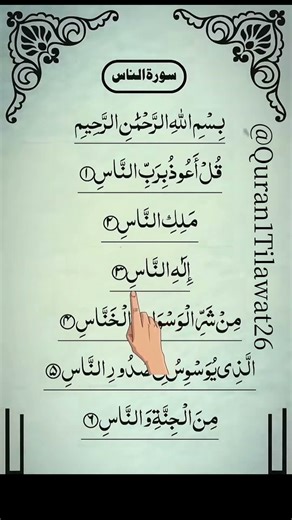 سورة الناس
بِسْمِ اللهِ الرَّحْمٰنِ الرَّحِيْمِ
قُلْ أَعُوذُ بِرَبِّ النَّاسِ ①
مَلِكِ النَّاسِ ②
إِلٰهِ النَّاسِ ③
مِنْ شَرِّ الْوَسْوَاسِ الْخَنَّاسِ ④
الَّذِى يُوَسْوِسُ فِى صُدُورِ النَّاسِ ⑤
مِنَ الْجِنَّةِ وَالنَّاسِ ⑥
@Quran1Tilawat26